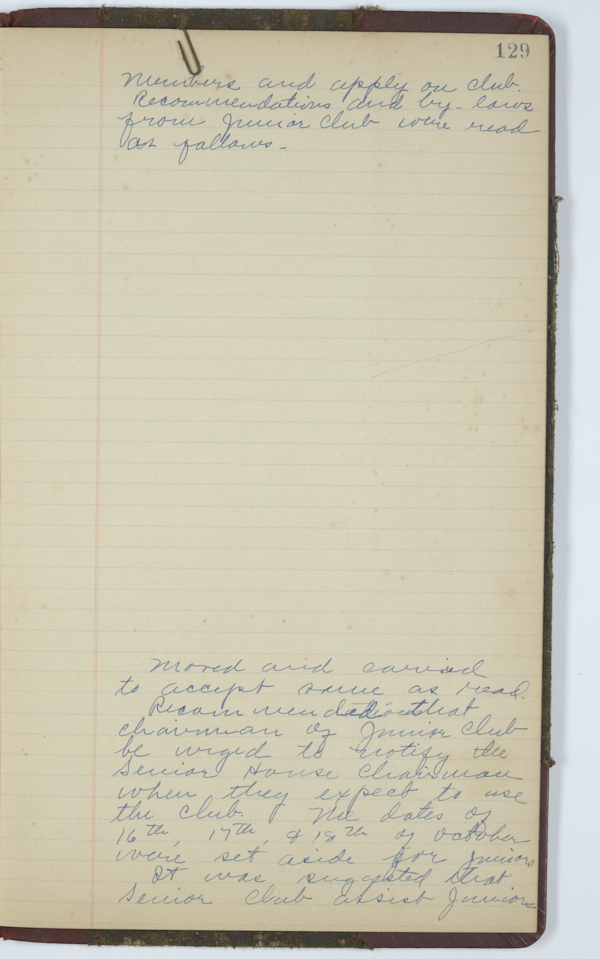 129
Members and apply on club.
Recommendations and by-laws
from Junior Club were read
as follows -
Moved and carried
to accept same as read.
Recommendation that
chairman of Junior Club
be urged to notify the
Senior House Chairman
when they expect to use
the club. The dates of
16th, 17th, & 18th of October
were set aside for Juniors
It was suggested that
Senior Club assist Juniors